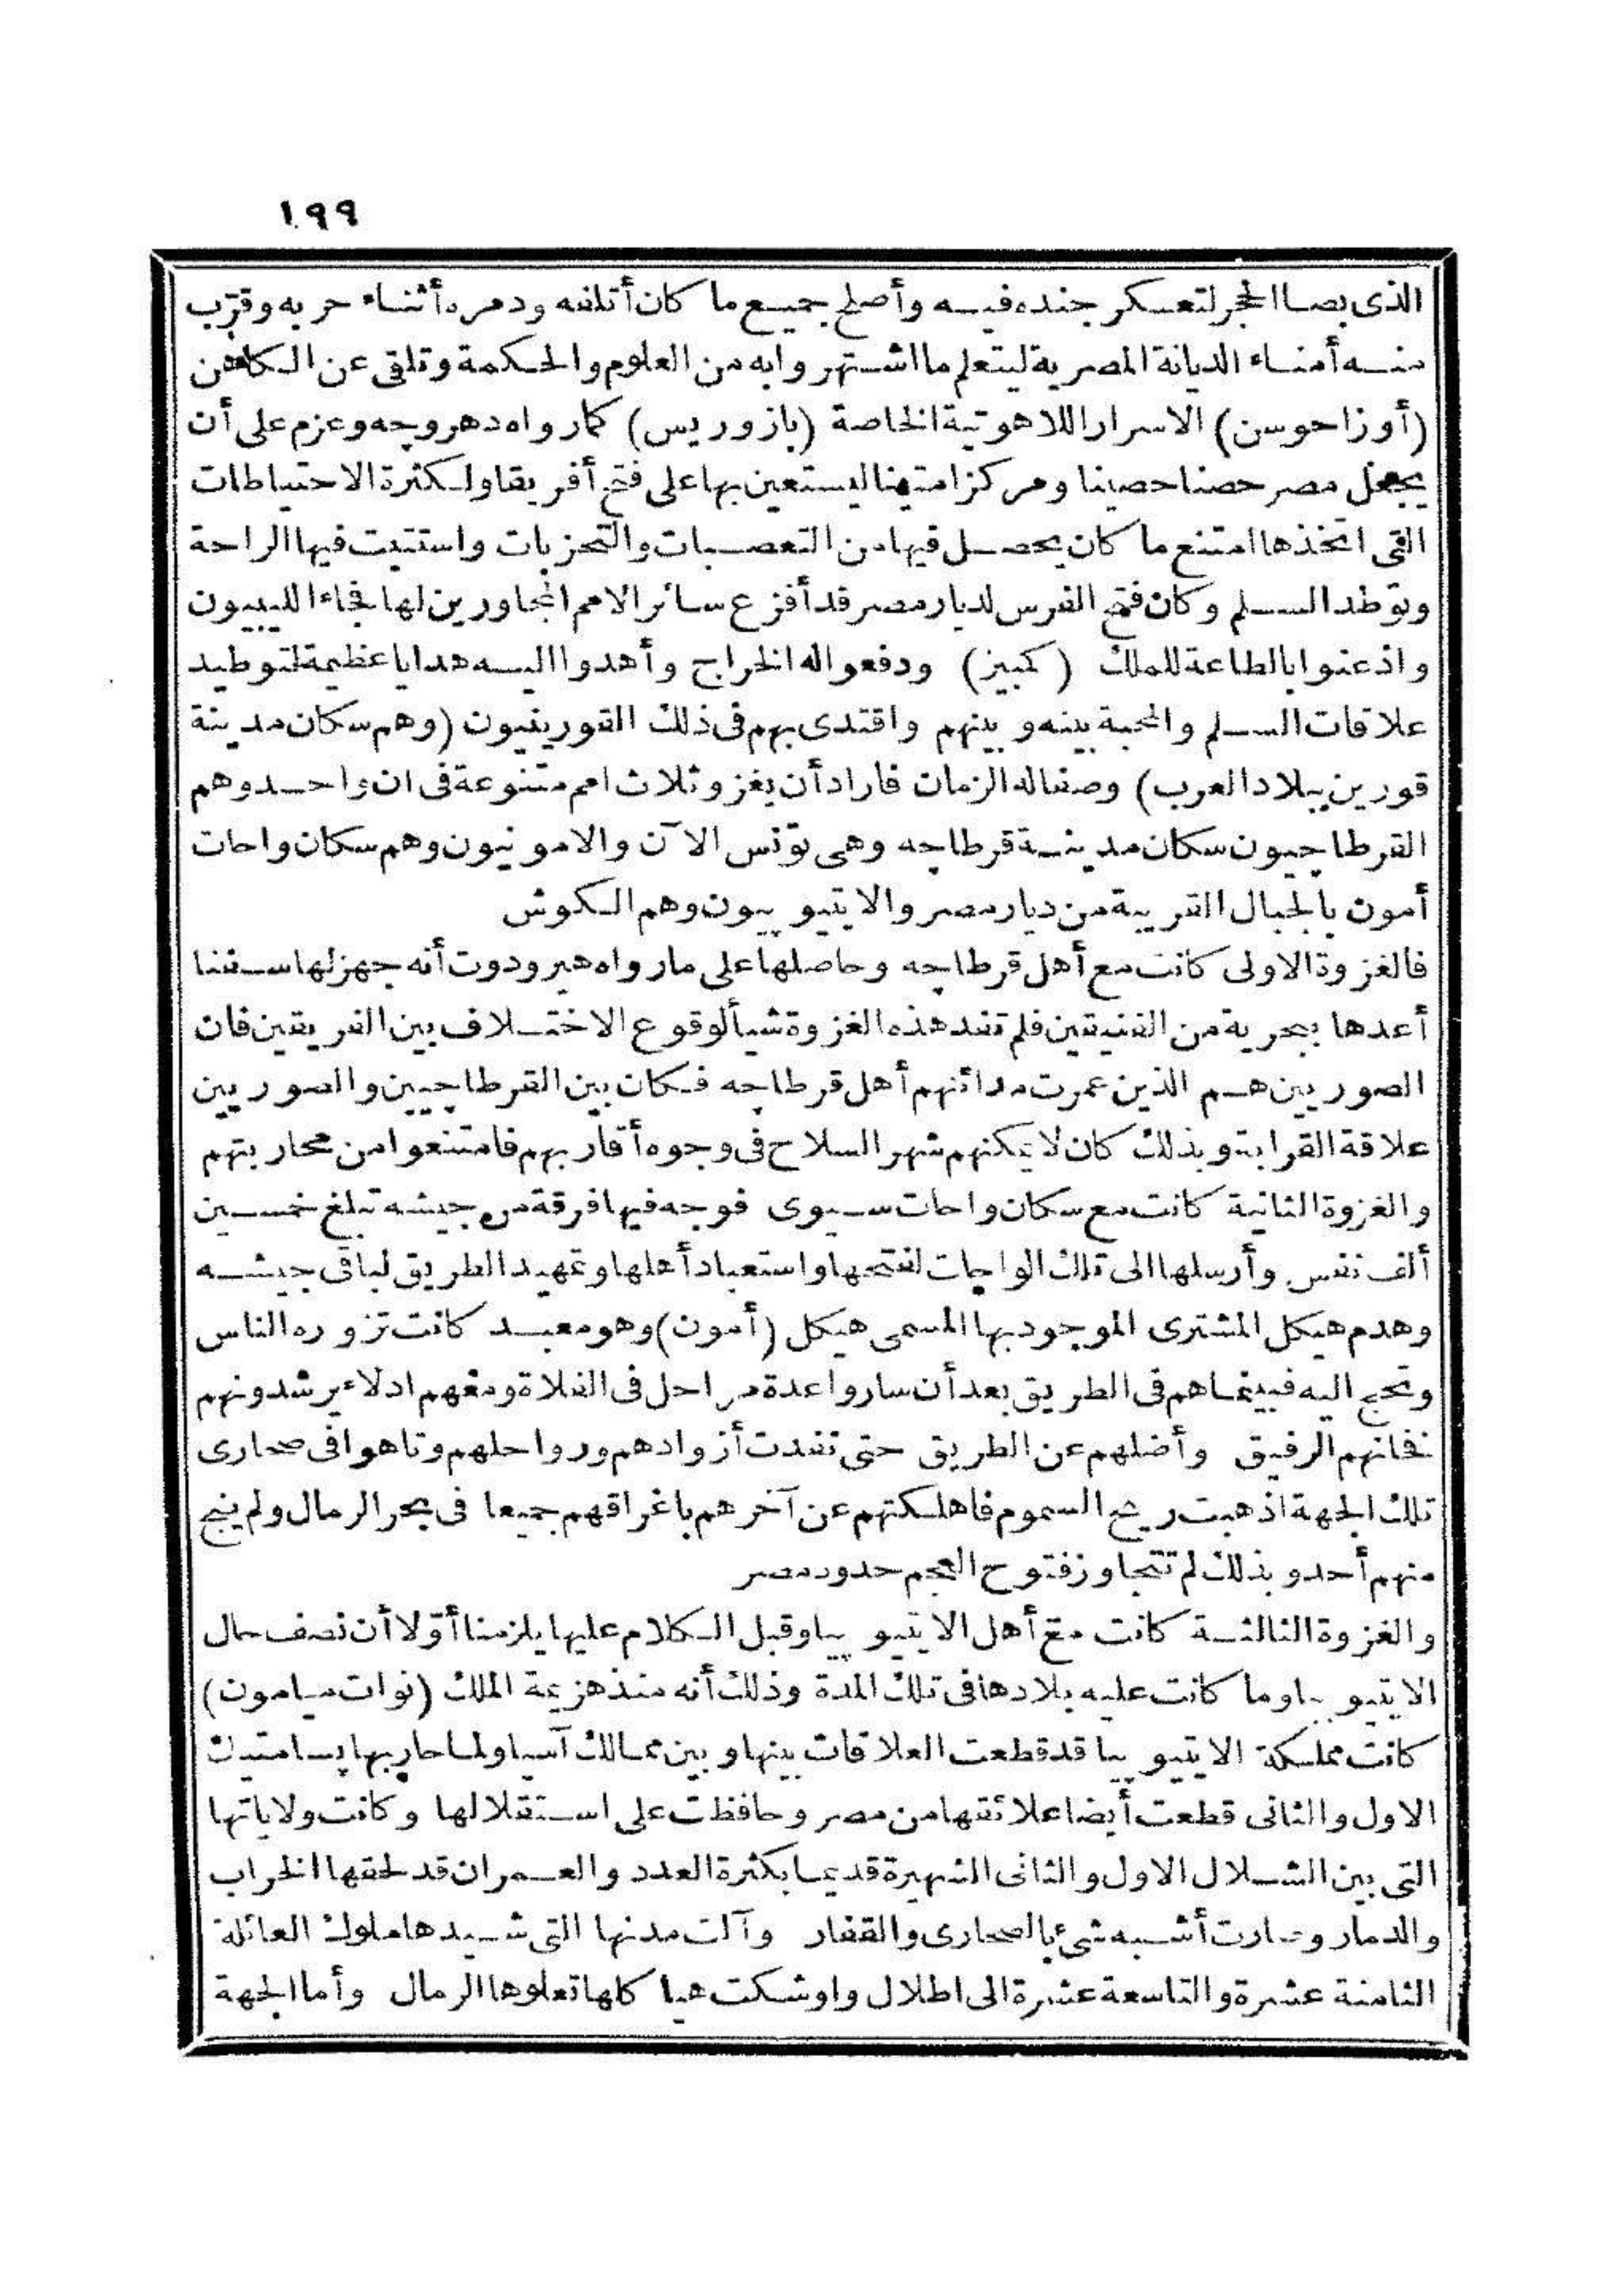 ١٩٩
الذى بصا الحجر لتعسكر جنده فيه وأصلح جميع ما كان أتلفه ودمره أثناء حربه وقرّب
منه أمناء الديانة المصرية ليتعلم ما اشتهروا به من العلوم والحكمة وتلقى عن الكاهن
(أوزاحوسن) الاسرار اللاهوتية الخاصة (بازوريس) كما رواه دهروجه وعزم على أن
يجعل مصر حصنا حصينا ومركزا متينا ليستعين بها على فتح أفريقا ولكثرة الاحتياطات
التى اتخذها امتنع ما كان يحصل فيها من التعصبات والتحزبات واستتبت فيها الراحة
وتوطد السلم وكان فتح الفرس لديار مصر قد أفزع سائر الامم المجاورين لها فجاء الليبيون
واذعنوا بالطاعة للملك (كمبيز) ودفعوا له الخراج وأهدوا اليه هدايا عظيمة لتوطيد
علاقات السلم والمحبة بينه وبينهم واقتدى بهم فى ذلك القورينيون (وهم سكان مدينة
قورين ببلاد العرب) وصفا له الزمان فاراد أن يغزو ثلاث امم متنوعة فى ان واحد وهم
القرطاجيون سكان مدينة قرطاجه وهى تونس الآن والامونيون وهم سكان واحات
أمون بالجبال القريبة من ديار مصر والايتيوپيون وهم الكوش
فالغزوة الاولى كانت مع أهل قرطاجه وحاصلها على ما رواه هيرودوت أنه جهز لها سفنا
أعدها ببحرية من الفنيقين فلم تفد هذه الغزوة شيأ لوقوع الاختلاف بين الفريقين فان
الصوريين هم الذين عمرت مدائنهم أهل قرطاجه فكان بين القرطاجيين والصوريين
علاقة القرابة وبذلك كان لا يمكنهم شهر السلاح فى وجوه أقاربهم فامتنعوا من محاربتهم
والغزوة الثانية كانت مع سكان واحات سيوى فوجه فيها فرقة من جيشه تبلغ خمسين
ألف نفس وأرسلها الى تلك الواحات لفتحها واستعباد أهلها وتمهيد الطريق لباقى جيشه
وهدم هيكل المشترى الموجود بها المسمى هيكل (أمون) وهو معبد كانت تزوره الناس
وتحج اليه فبينما هم فى الطريق بعد أن ساروا عدة مراحل فى الفلاة ومعهم ادلاء يرشدونهم
فخانهم الرفيق وأضلهم عن الطريق حتى نفدت أزوادهم ورواحلهم وتاهوا فى صحارى
تلك الجهة اذ هبت ريح السموم فاهلكتهم عن آخرهم باغراقهم جميعا فى بحر الرمال ولم ينج
منهم أحد وبذلك لم تتجاوز فتوح العجم حدود مصر
والغزوة الثالثة كانت مع أهل الايتيوپيا وقبل الكلام عليها يلزمنا أوّلا أن نصف حال
الايتيوپيا وما كانت عليه بلادها فى تلك المدة وذلك أنه منذ هزيمة الملك (نوات ميامون)
كانت مملكة الايتيوپيا قد قطعت العلاقات بينها وبين ممالك آسيا ولما حاربها پسامتيك
الاول والثانى قطعت أيضا علائقها من مصر وحافظت على استقلالها وكانت ولاياتها
التى بين الشلال الاول والثانى الشهيرة قديما بكثرة العدد والعمران قد لحقها الخراب
والدمار وصارت أشبه شئ بالصحارى والقفار وآلت مدنها التى شيدها ملوك العائلة
الثامنة عشرة والتاسعة عشرة الى اطلال واوشكت هيا كلها تعلوها الرمال وأما الجهة